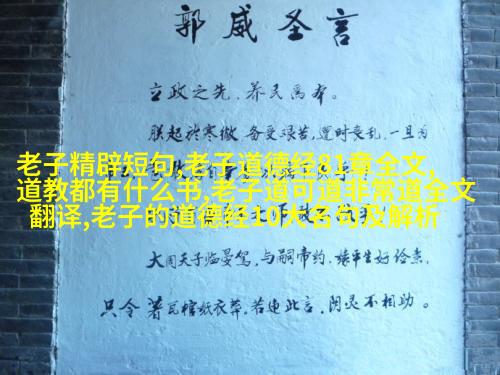 郭威圣言
立政之先，养民為本。
朕起於寒微，备受艰苦，遭时丧乱，一旦为
老子精辟短句,老子道德经81章全文,
道教都有什么书,老子道可道非常道全文
翻译,老子的道德经10大名句及解析
大周天子临晏驾，与嗣帝约，缘平生好俭素，
只令著瓦棺纸衣葬。若违此言，阴灵不相助。